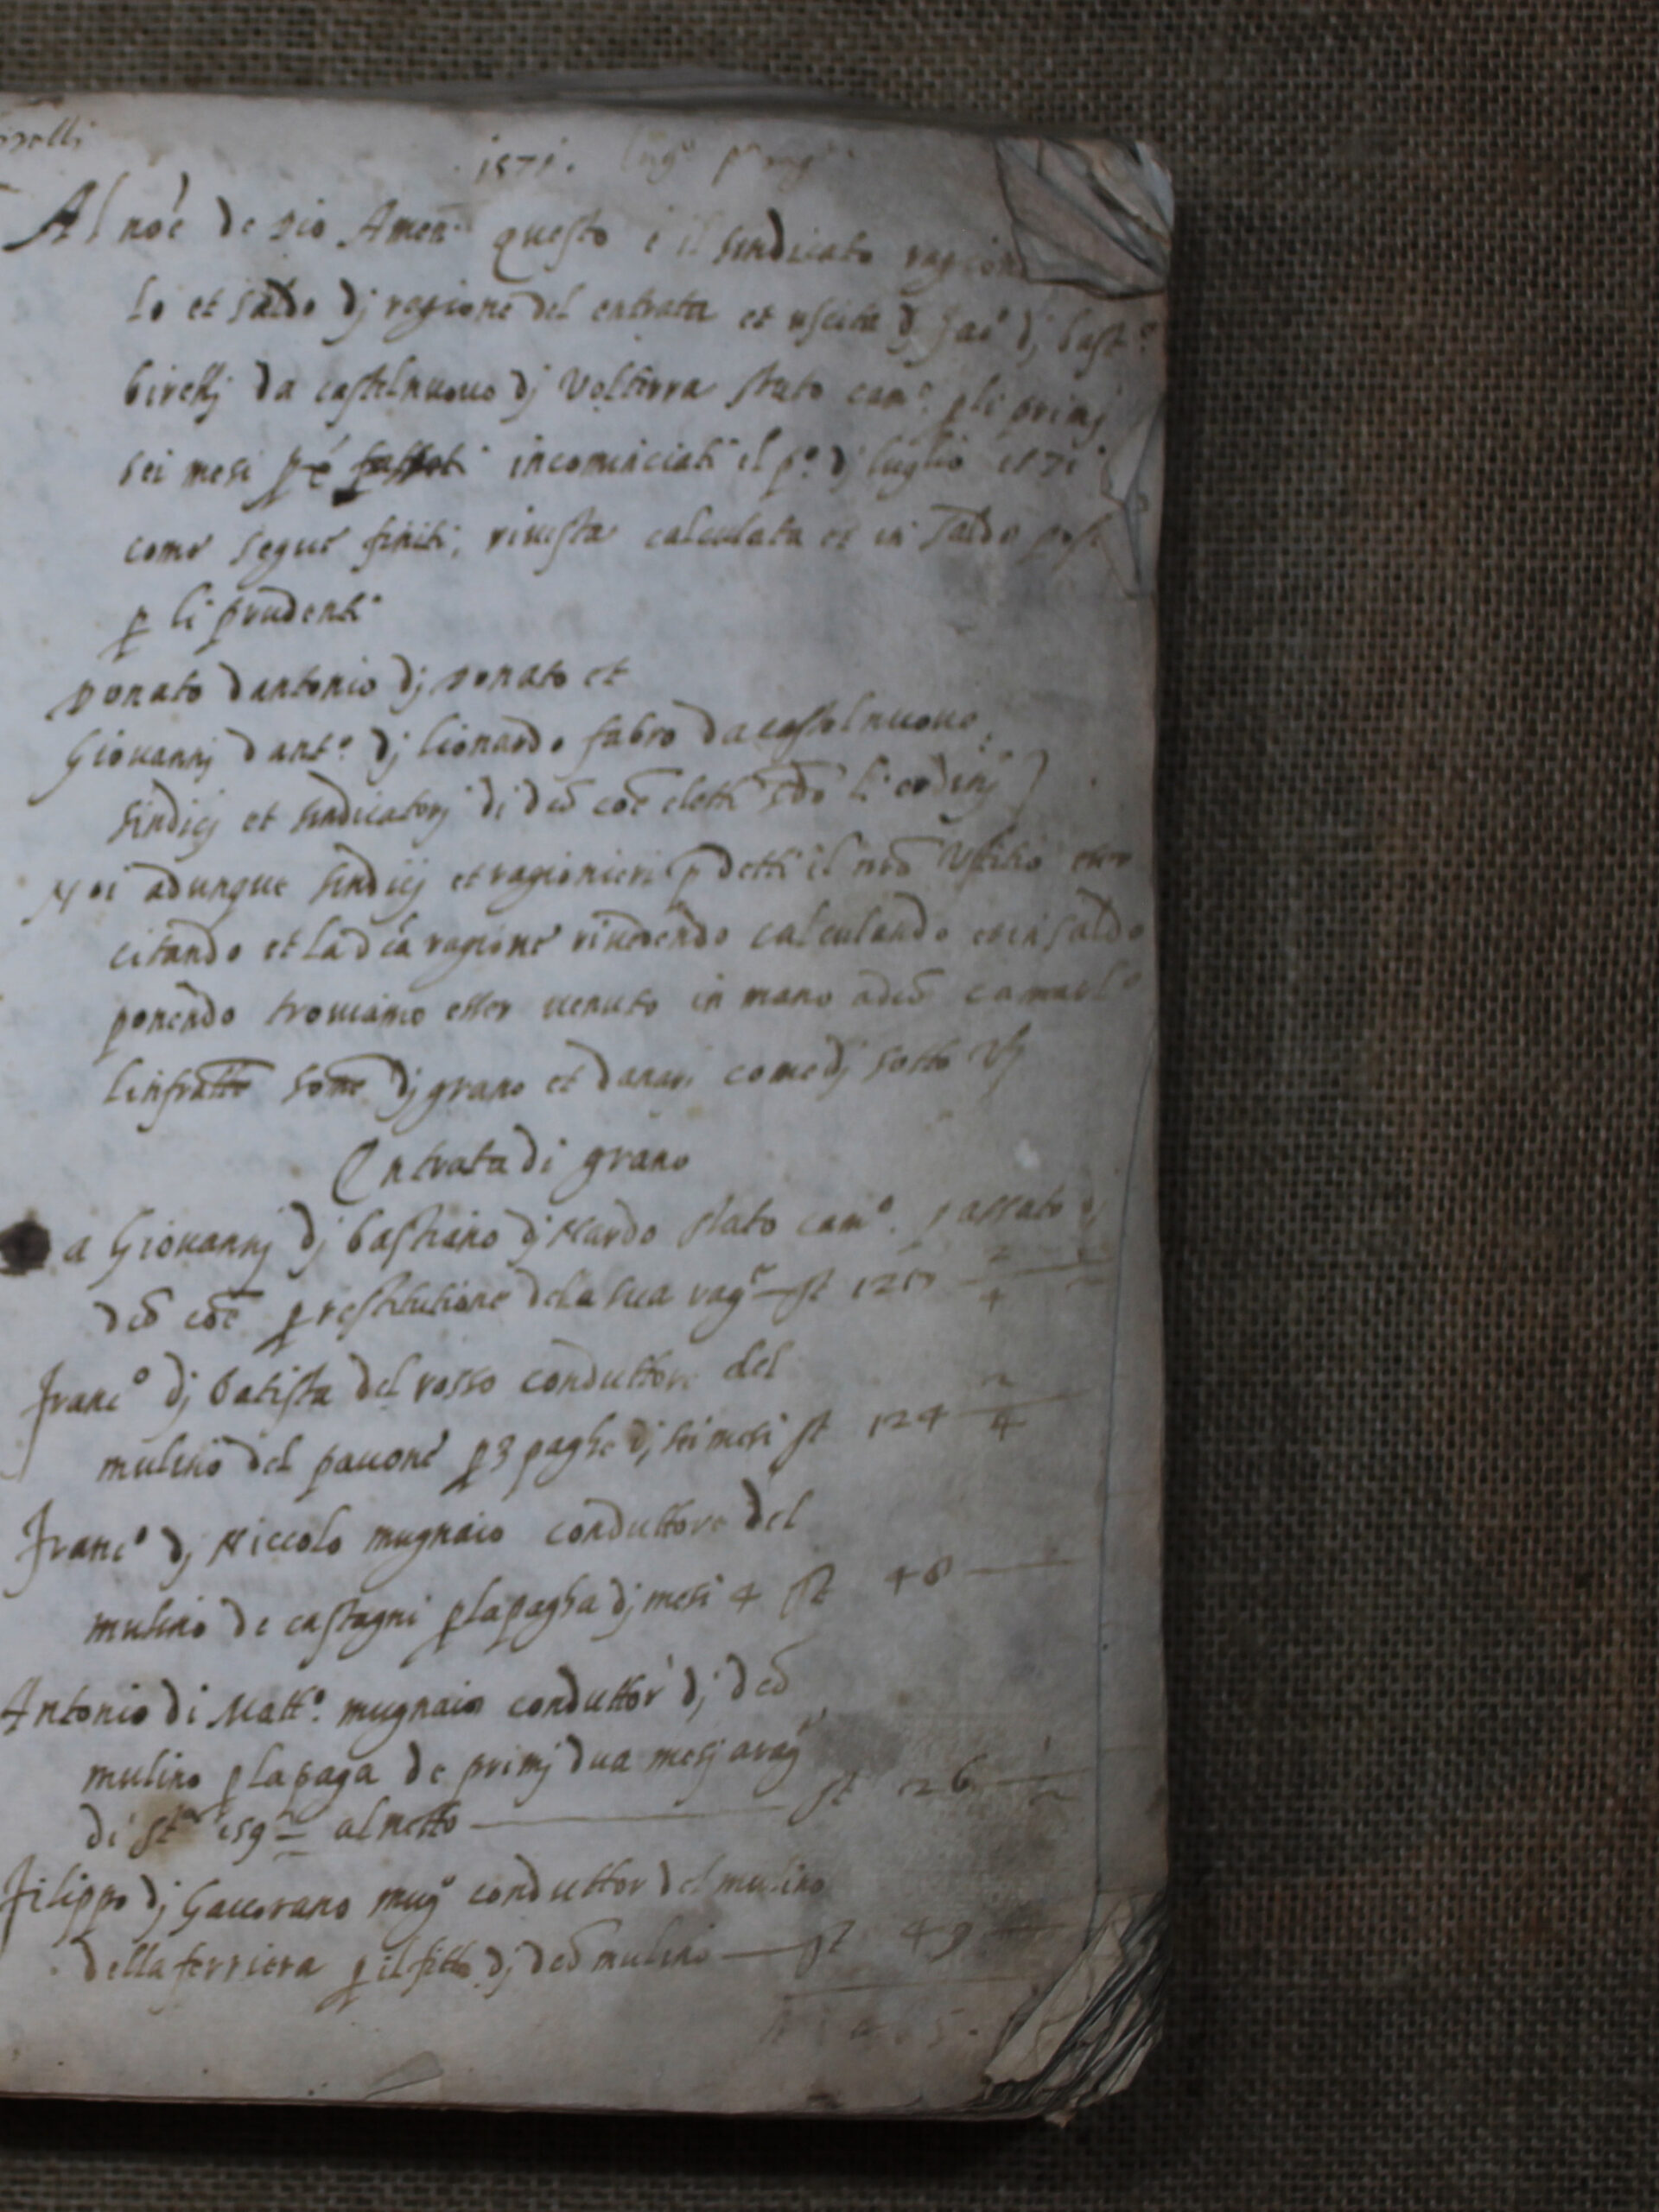 1571.
Al noe de Dio Amen questo è il sindicato ragion
lo et saldo dj ragione del entrata et uscita dj Jac° dj bast°
birellj da castelnuouo dj Volterra stato cam° p li primj
sei mesi incominciati il p° dj luglio 1571
come segue finiti, riuista calculata et in saldo posta
p li prudenti
Donato dantonio dj Donato et
Giouannj dant° dj lionardo fabro da castelnuouo
Sindicj et sindicatorj di dco coe eletti sdo li ordinj
Noi adunque sindicj et ragionieri p detti il nro Uffitio exer
citando et la dca ragione riuedendo calculando et in saldo
ponendo trouiamo esser uenuto in mano a dco camarl°
linfratte some dj grano et danari come dj sotto
Entrata di grano
a Giouannj dj bastiano dj Nardo stato cam° passato dj
dco coe p restitutione dela sua rag st
Franc° dj batista del rosso conduttore del
mulino del pauone p 3 paghe dj sei mesi st 124
Franc° dj Niccolo mugnaio conduttore del
mulino de castagni p la pagha dj mesi 4 st 48
Antonio di Matt° mugnaio conduttor dj dco
mulino p la paga de primj dua mesj a rag
di st 159 al netto st 26 1/2
Filippo dj Gauorano mug° conduttor del mulino
della ferriera p il fitto dj dco mulino st 49